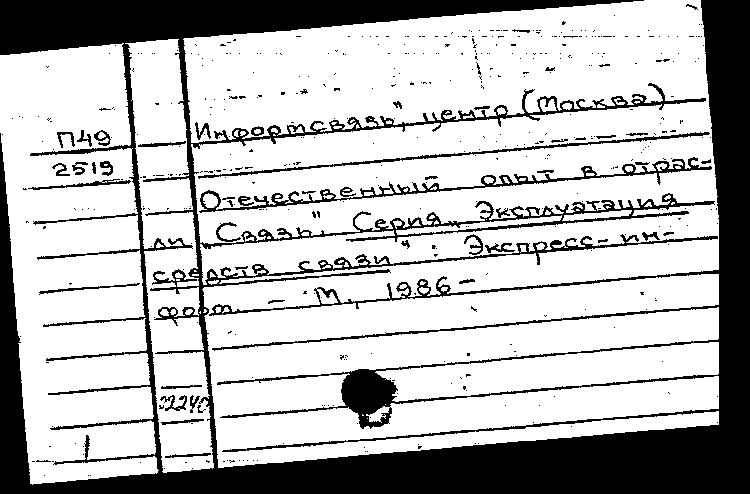 П49
2519
„Информсвязь", центр (Москва)
Отечественный опыт в отрас-
ли „Связь". Серия „Эксплуатация
средств связи" : Экспресс-ин-
форм. - М., 1986 -
2240